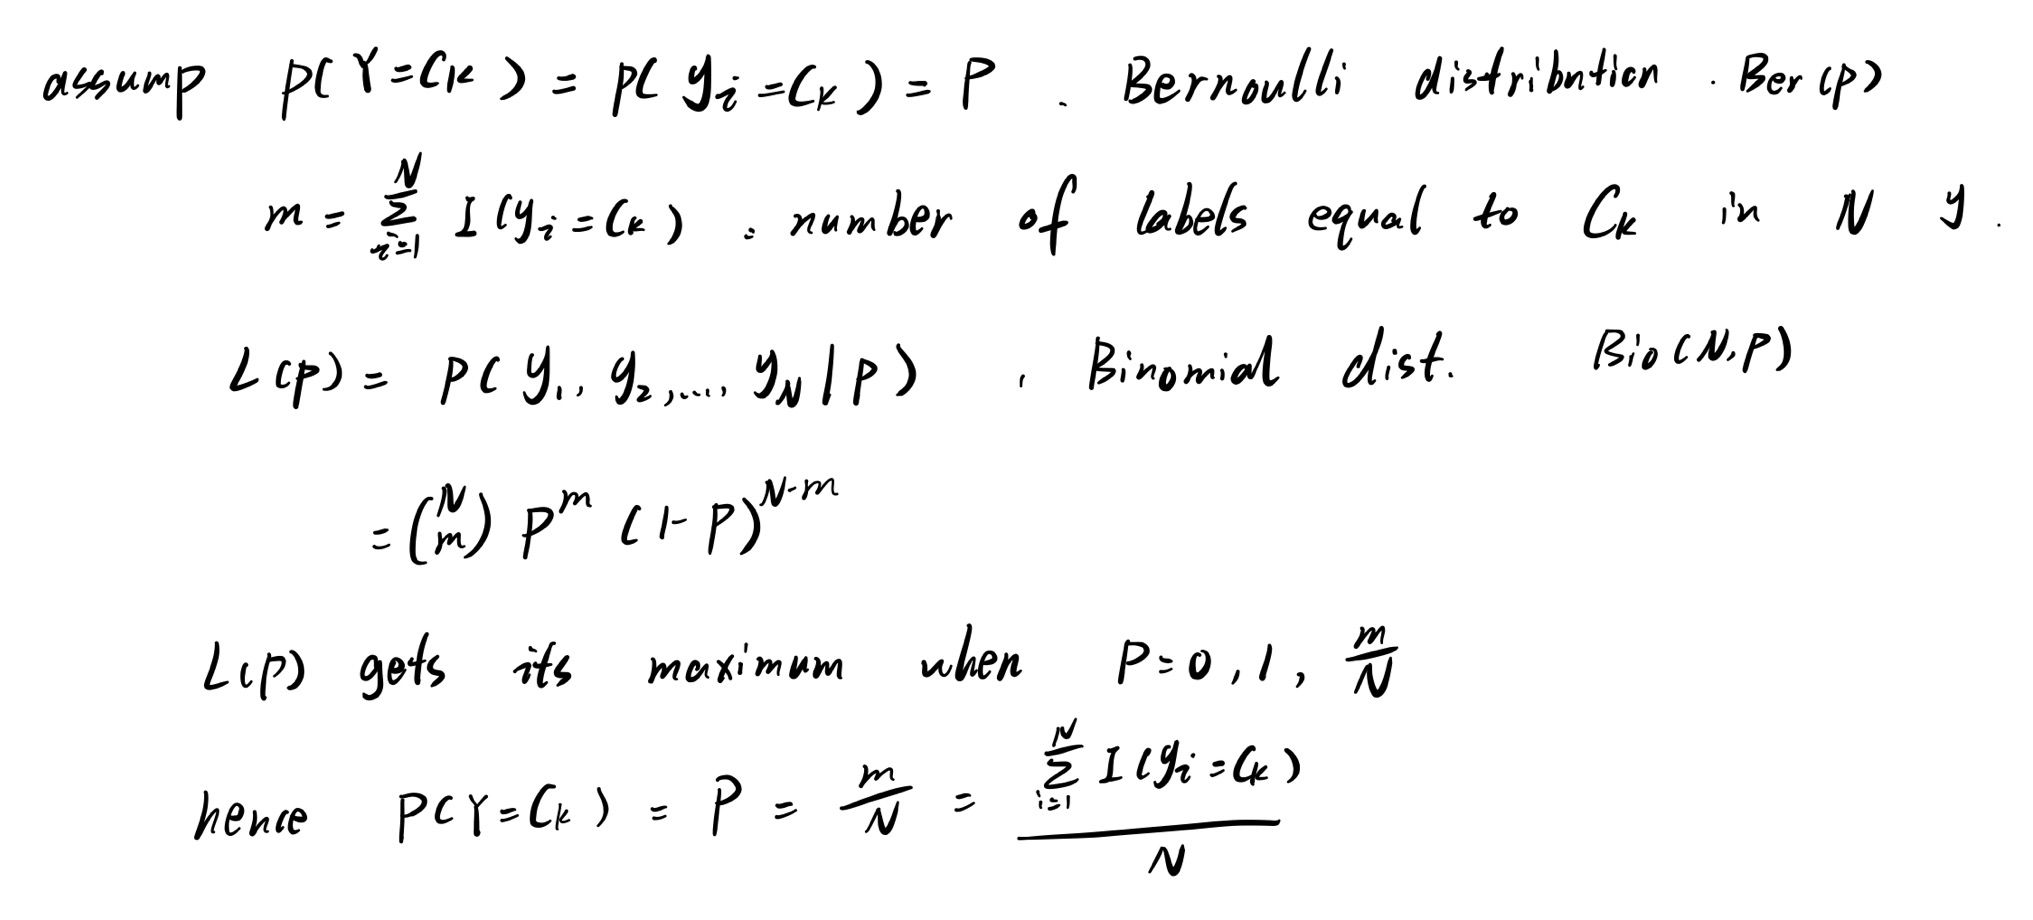 assump P(Y=Ck) = P(yi=Ck) = P . Bernoulli distribution . Ber(p)
m = Σ_{i=1}^{N} I(yi=Ck) . number of labels equal to Ck in N y .
L(p) = P(y1, y2, ..., yN | p) , Binomial dist. Bio(N,P)
= (N m) P^m (1-P)^{N-m}
L(p) gets its maximum when P=0, 1, m/N
hence P(Y=Ck) = P = m/N = Σ_{i=1}^{N} I(yi=Ck) / N